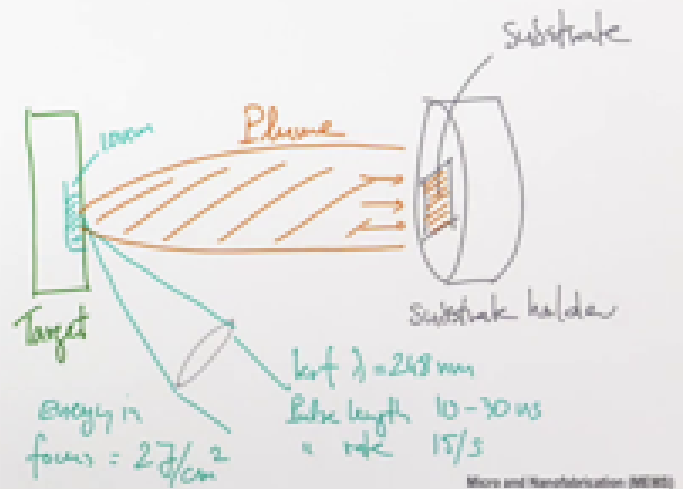 substrate
Plume
Target
substrate holder
KrF λ = 248 nm
Pulse length 10-30 ns
" rate 15/s
energy in
focus = 2J/cm²
Micro and Nanofabrication (MEMS)